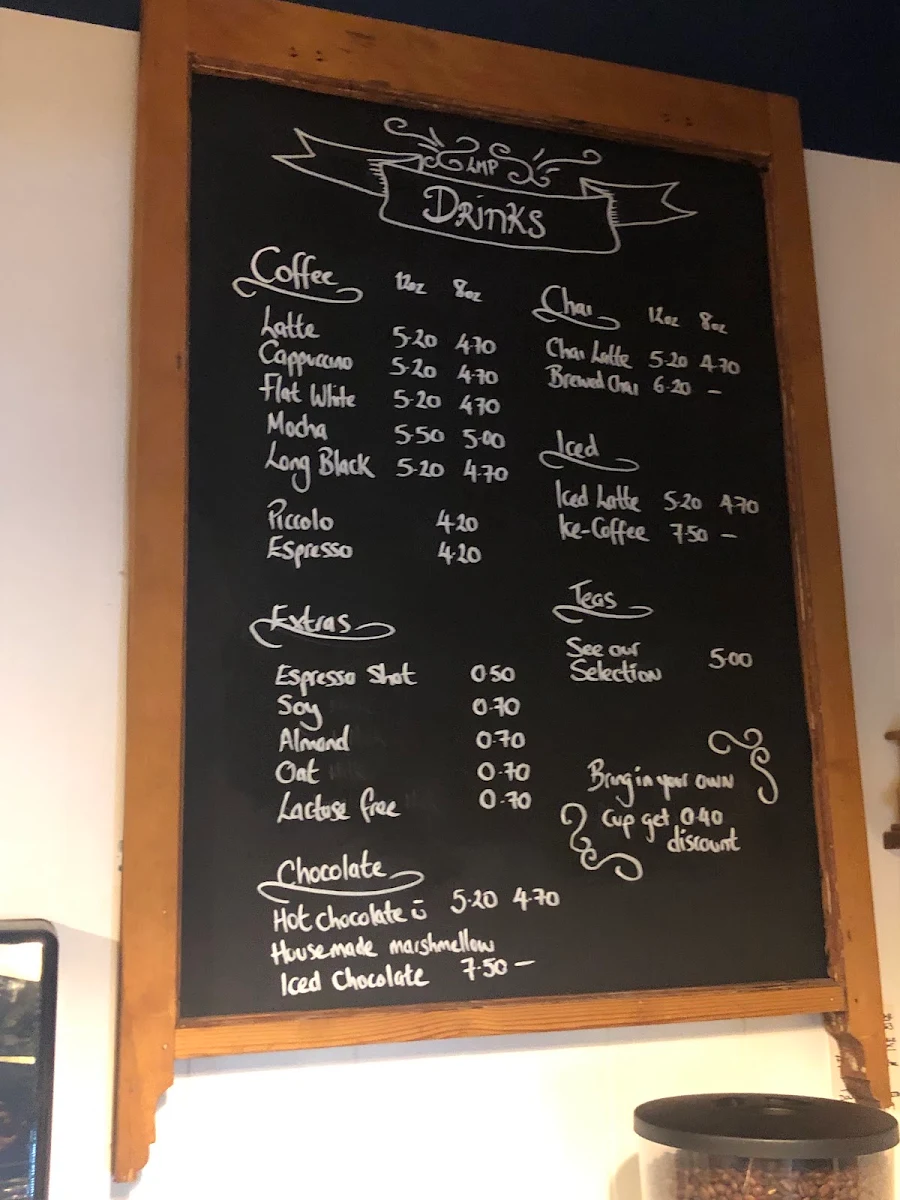 LMP
Drinks
Coffee 12oz 8oz
Latte 5.20 4.70
Cappuccino 5.20 4.70
Flat White 5.20 4.70
Mocha 5.50 5.00
Long Black 5.20 4.70
Piccolo 4.20
Espresso 4.20
Extras
Espresso Shot 0.50
Soy 0.70
Almond 0.70
Oat 0.70
Lactose free 0.70
Chocolate
Hot chocolate 5.20 4.70
Housemade marshmellow
Iced Chocolate 7.50 –
Chai 12oz 8oz
Chai Latte 5.20 4.70
Brewed Chai 6.20 –
Iced
Iced Latte 5.20 4.70
Ice-Coffee 7.50 –
Teas
See our
Selection 5.00
Bring in your own
Cup get 0.40
discount